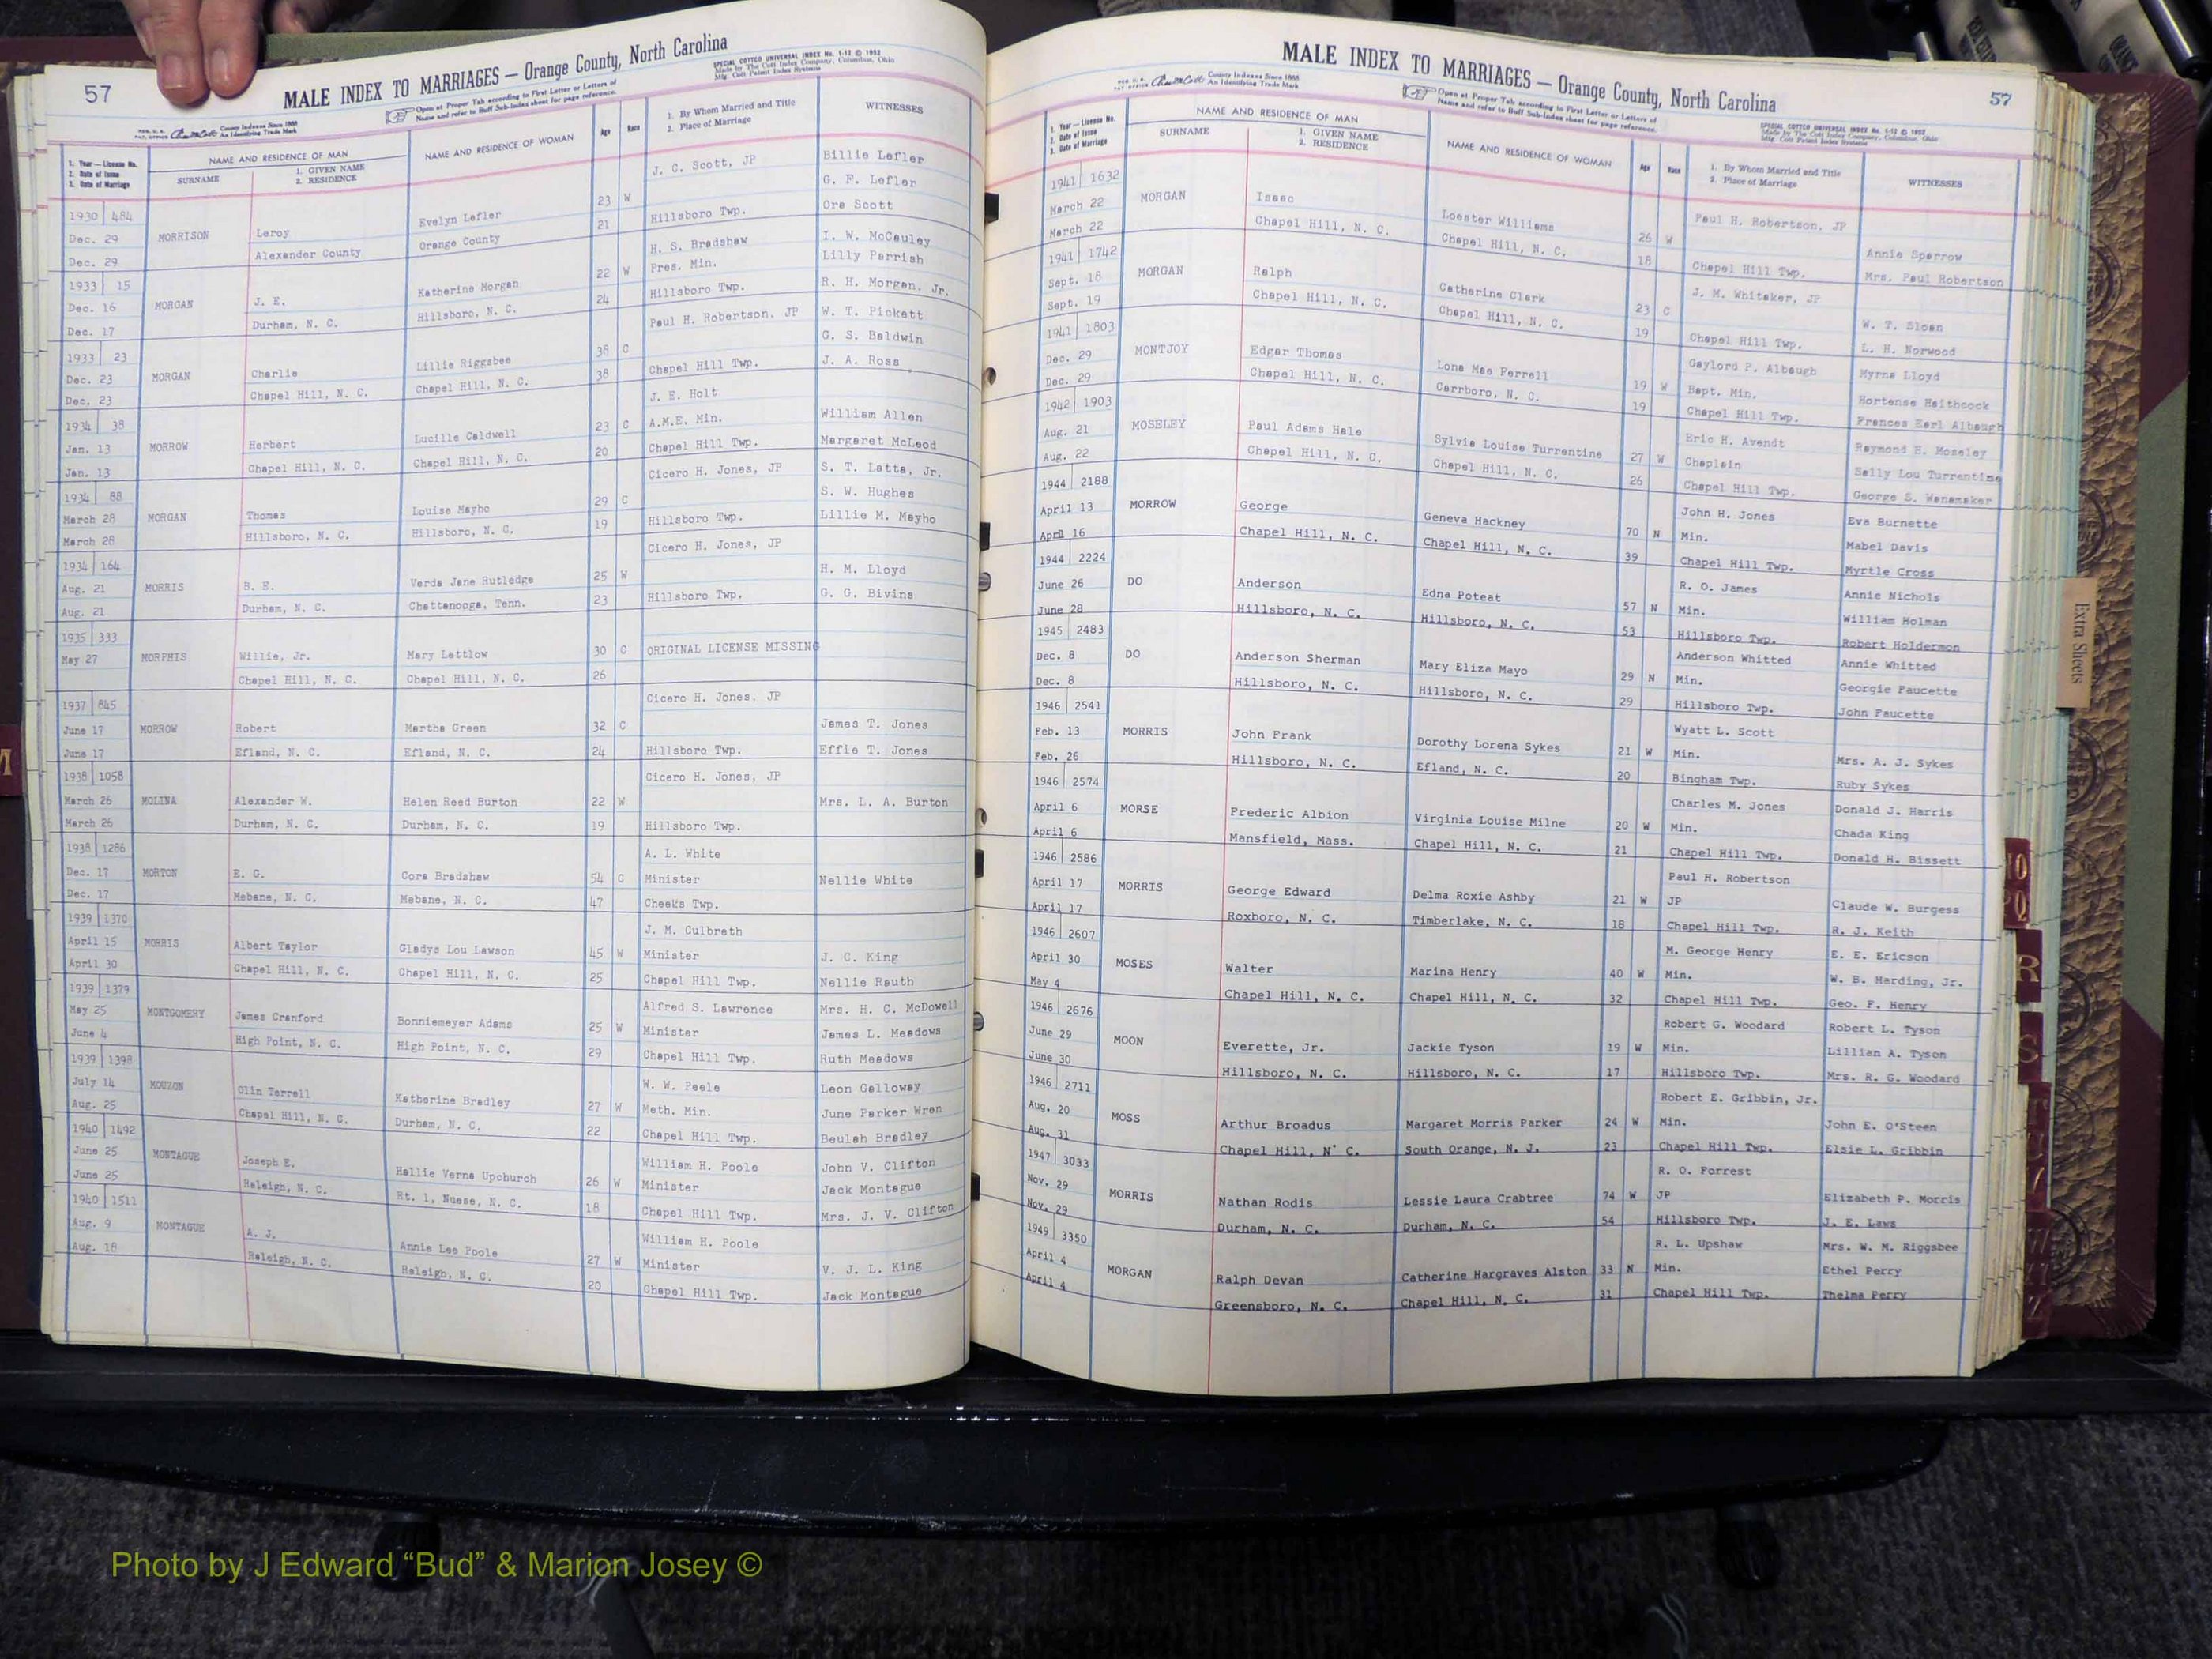 57
MALE INDEX TO MARRIAGES — Orange County, North Carolina
SPECIAL COTTCO UNIVERSAL INDEX No. 1-12 © 1952
Made by The Cott Index Company, Columbus, Ohio
Mfg. Cott Patent Index Systems
Open at Proper Tab according to First Letter or Letters of
Name and refer to Buff Sub-Index sheet for page reference.
County Indexes Since 1888
An Identifying Trade Mark
1. Year — License No.
2. Date of Issue
3. Date of Marriage
NAME AND RESIDENCE OF MAN
SURNAME
1. GIVEN NAME
2. RESIDENCE
NAME AND RESIDENCE OF WOMAN
Age
Race
1. By Whom Married and Title
2. Place of Marriage
WITNESSES
J. C. Scott, JP Billie Lefler
1930 484 23 W G. F. Lefler
Dec. 29 MORRISON Leroy Evelyn Lefler 21 Hillsboro Twp. Ora Scott
Dec. 29 Alexander County Orange County
H. S. Bradshaw I. W. McCauley
1933 15 22 W Pres. Min. Lilly Parrish
Dec. 16 MORGAN J. E. Katherine Morgan 24 Hillsboro Twp. R. H. Morgan, Jr.
Dec. 17 Durham, N. C. Hillsboro, N. C.
Paul H. Robertson, JP W. T. Pickett
1933 23 38 C G. S. Baldwin
Dec. 23 MORGAN Charlie Lillie Riggsbee 38 Chapel Hill Twp. J. A. Ross
Dec. 23 Chapel Hill, N. C. Chapel Hill, N. C.
J. E. Holt
1934 38 23 C A.M.E. Min. William Allen
Jan. 13 MORROW Herbert Lucille Caldwell 20 Chapel Hill Twp. Margaret McLeod
Jan. 13 Chapel Hill, N. C. Chapel Hill, N. C.
Cicero H. Jones, JP S. T. Latta, Jr.
1934 88 29 C S. W. Hughes
March 28 MORGAN Thomas Louise Mayho 19 Hillsboro Twp. Lillie M. Mayho
March 28 Hillsboro, N. C. Hillsboro, N. C.
Cicero H. Jones, JP
1934 164 H. M. Lloyd
Aug. 21 MORRIS B. E. Verda Jane Rutledge 25 W
Aug. 21 Durham, N. C. Chattanooga, Tenn. 23 Hillsboro Twp. G. G. Bivins
1935 333
May 27 MORPHIS Willie, Jr. Mary Lattlow 30 C ORIGINAL LICENSE MISSING
Chapel Hill, N. C. Chapel Hill, N. C. 26
1937 845 Cicero H. Jones, JP
June 17 MORROW Robert Martha Green 32 C James T. Jones
June 17 Efland, N. C. Efland, N. C. 24 Hillsboro Twp. Effie T. Jones
1938 1058 Cicero H. Jones, JP
March 26 MOLINA Alexander W. Helen Reed Burton 22 W Mrs. L. A. Burton
March 26 Durham, N. C. Durham, N. C. 19 Hillsboro Twp.
1938 1286 A. L. White
Dec. 17 MORTON E. G. Cora Bradshaw 54 C Minister Nellie White
Dec. 17 Mebane, N. C. Mebane, N. C. 47 Cheeks Twp.
1939 1370 J. M. Culbreth
April 15 MORRIS Albert Taylor Gladys Lou Lawson 45 W Minister J. C. King
April 30 Chapel Hill, N. C. Chapel Hill, N. C. 25 Chapel Hill Twp. Nellie Rauth
1939 1379 Alfred S. Lawrence Mrs. H. C. McDowell
May 25 MONTGOMERY James Cranford Bonniemeyer Adams 25 W Minister James L. Meadows
June 4 High Point, N. C. High Point, N. C. 29 Chapel Hill Twp. Ruth Meadows
1939 1398 W. W. Peele Leon Galloway
July 14 MOUZON Olin Terrell Katherine Bradley 27 W Meth. Min. June Parker Wren
Aug. 25 Chapel Hill, N. C. Durham, N. C. 22 Chapel Hill Twp. Beulah Bradley
1940 1492 William H. Poole John V. Clifton
June 25 MONTAGUE Joseph E. Hallie Verna Upchurch 26 W Minister Jack Montague
June 25 Raleigh, N. C. Rt. 1, Nuese, N. C. 18 Chapel Hill Twp. Mrs. J. V. Clifton
1940 1511 William H. Poole
Aug. 9 MONTAGUE A. J. Annie Lee Poole 27 W Minister V. J. L. King
Aug. 18 Raleigh, N. C. Raleigh, N. C. 20 Chapel Hill Twp. Jack Montague
MALE INDEX TO MARRIAGES — Orange County, North Carolina
57
County Indexes Since 1888
An Identifying Trade Mark
Open at Proper Tab according to First Letter or Letters of
Name and refer to Buff Sub-Index sheet for page reference.
SPECIAL COTTCO UNIVERSAL INDEX No. 1-12 © 1952
Made by The Cott Index Company, Columbus, Ohio
Mfg. Cott Patent Index Systems
1. Year — License No.
2. Date of Issue
3. Date of Marriage
NAME AND RESIDENCE OF MAN
SURNAME
1. GIVEN NAME
2. RESIDENCE
NAME AND RESIDENCE OF WOMAN
Age
Race
1. By Whom Married and Title
2. Place of Marriage
WITNESSES
1941 1632 Paul H. Robertson, JP
March 22 MORGAN Isaac Loester Williams 26 W Annie Sparrow
March 22 Chapel Hill, N. C. Chapel Hill, N. C. 18 Chapel Hill Twp. Mrs. Paul Robertson
1941 1742 J. M. Whitaker, JP
Sept. 18 MORGAN Ralph Catherine Clark 23 C W. T. Sloan
Sept. 19 Chapel Hill, N. C. Chapel Hill, N. C. 19 Chapel Hill Twp. L. H. Norwood
1941 1803 Gaylord P. Albaugh Myrna Lloyd
Dec. 29 MONTJOY Edgar Thomas Lona Mae Ferrell 19 W Bapt. Min. Hortense Haithcock
Dec. 29 Chapel Hill, N. C. Carrboro, N. C. 19 Chapel Hill Twp. Frances Earl Albaugh
1942 1903 Eric H. Avendt Raymond E. Moseley
Aug. 21 MOSELEY Paul Adams Hale Sylvia Louise Turrentine 27 W Chaplain Sally Lou Turrentine
Aug. 22 Chapel Hill, N. C. Chapel Hill, N. C. 26 Chapel Hill Twp. George S. Wanamaker
1944 2188 John H. Jones Eva Burnette
April 13 MORROW George Geneva Hackney 70 N Min. Mabel Davis
April 16 Chapel Hill, N. C. Chapel Hill, N. C. 39 Chapel Hill Twp. Myrtle Cross
1944 2224 R. O. James Annie Nichols
June 26 DO Anderson Edna Poteat 57 N Min. William Holman
June 28 Hillsboro, N. C. Hillsboro, N. C. 53 Hillsboro Twp. Robert Holderman
1945 2483 Anderson Whitted Annie Whitted
Dec. 8 DO Anderson Sherman Mary Eliza Mayo 29 N Min. Georgie Faucette
Dec. 8 Hillsboro, N. C. Hillsboro, N. C. 29 Hillsboro Twp. John Faucette
1946 2541 Wyatt L. Scott
Feb. 13 MORRIS John Frank Dorothy Lorena Sykes 21 W Min. Mrs. A. J. Sykes
Feb. 26 Hillsboro, N. C. Efland, N. C. 20 Bingham Twp. Ruby Sykes
1946 2574 Charles M. Jones Donald J. Harris
April 6 MORSE Frederic Albion Virginia Louise Milne 20 W Min. Chada King
April 6 Mansfield, Mass. Chapel Hill, N. C. 21 Chapel Hill Twp. Donald H. Bissett
1946 2586 Paul H. Robertson
April 17 MORRIS George Edward Delma Roxie Ashby 21 W JP Claude W. Burgess
April 17 Roxboro, N. C. Timberlake, N. C. 18 Chapel Hill Twp. R. J. Keith
1946 2607 M. George Henry E. E. Ericson
April 30 MOSES Walter Marina Henry 40 W Min. W. B. Harding, Jr.
May 4 Chapel Hill, N. C. Chapel Hill, N. C. 32 Chapel Hill Twp. Geo. F. Henry
1946 2676 Robert G. Woodard Robert L. Tyson
June 29 MOON Everette, Jr. Jackie Tyson 19 W Min. Lillian A. Tyson
June 30 Hillsboro, N. C. Hillsboro, N. C. 17 Hillsboro Twp. Mrs. R. G. Woodard
1946 2711 Robert E. Gribbin, Jr.
Aug. 20 MOSS Arthur Broadus Margaret Morris Parker 24 W Min. John E. O'Steen
Aug. 31 Chapel Hill, N. C. South Orange, N. J. 23 Chapel Hill Twp. Elsie L. Gribbin
1947 3033 R. O. Forrest
Nov. 29 MORRIS Nathan Rodis Lessie Laura Crabtree 74 W JP Elizabeth P. Morris
Nov. 29 Durham, N. C. Durham, N. C. 54 Hillsboro Twp. J. E. Laws
1949 3350 R. L. Upshaw Mrs. W. M. Riggsbee
April 4 MORGAN Ralph Devan Catherine Hargraves Alston 33 N Min. Ethel Perry
April 4 Greensboro, N. C. Chapel Hill, N. C. 31 Chapel Hill Twp. Thelma Perry
Extra Sheets
R
S
Photo by J Edward “Bud” & Marion Josey ©